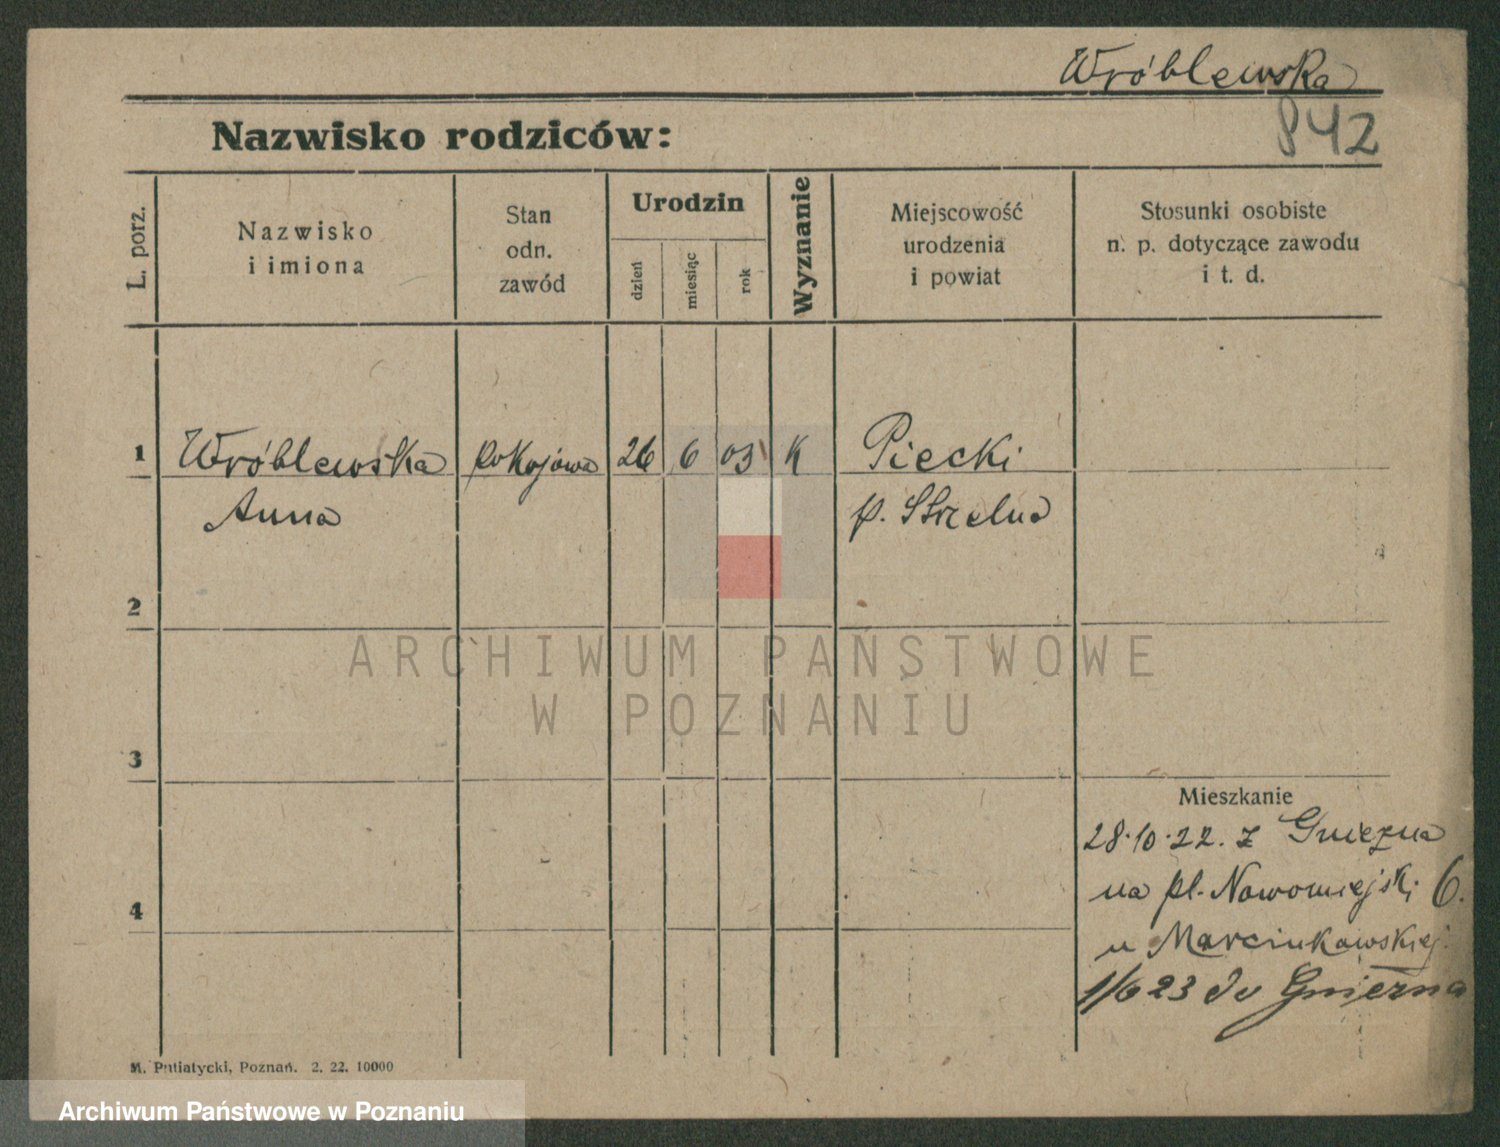 Wróblewska
842
Nazwisko rodziców:
L. porz.
Nazwisko
i imiona
Stan
odn.
zawód
Urodzin
dzień
miesiąc
rok
Wyznanie
Miejscowość
urodzenia
i powiat
Stosunki osobiste
n. p. dotyczące zawodu
i t. d.
1 Wróblewska pokojowa 26 6 03 K Piecki
Anna p. Strzelna
2
ARCHIWUM PAŃSTWOWE
W POZNANIU
3
Mieszkanie
28.10.22. z Gniezna
na pl. Nowomiejski 6.
4
u Marcinkowskiej
1/6 23 do Gniezna
M. Putiatycki, Poznań. 2. 22. 10000
Archiwum Państwowe w Poznaniu